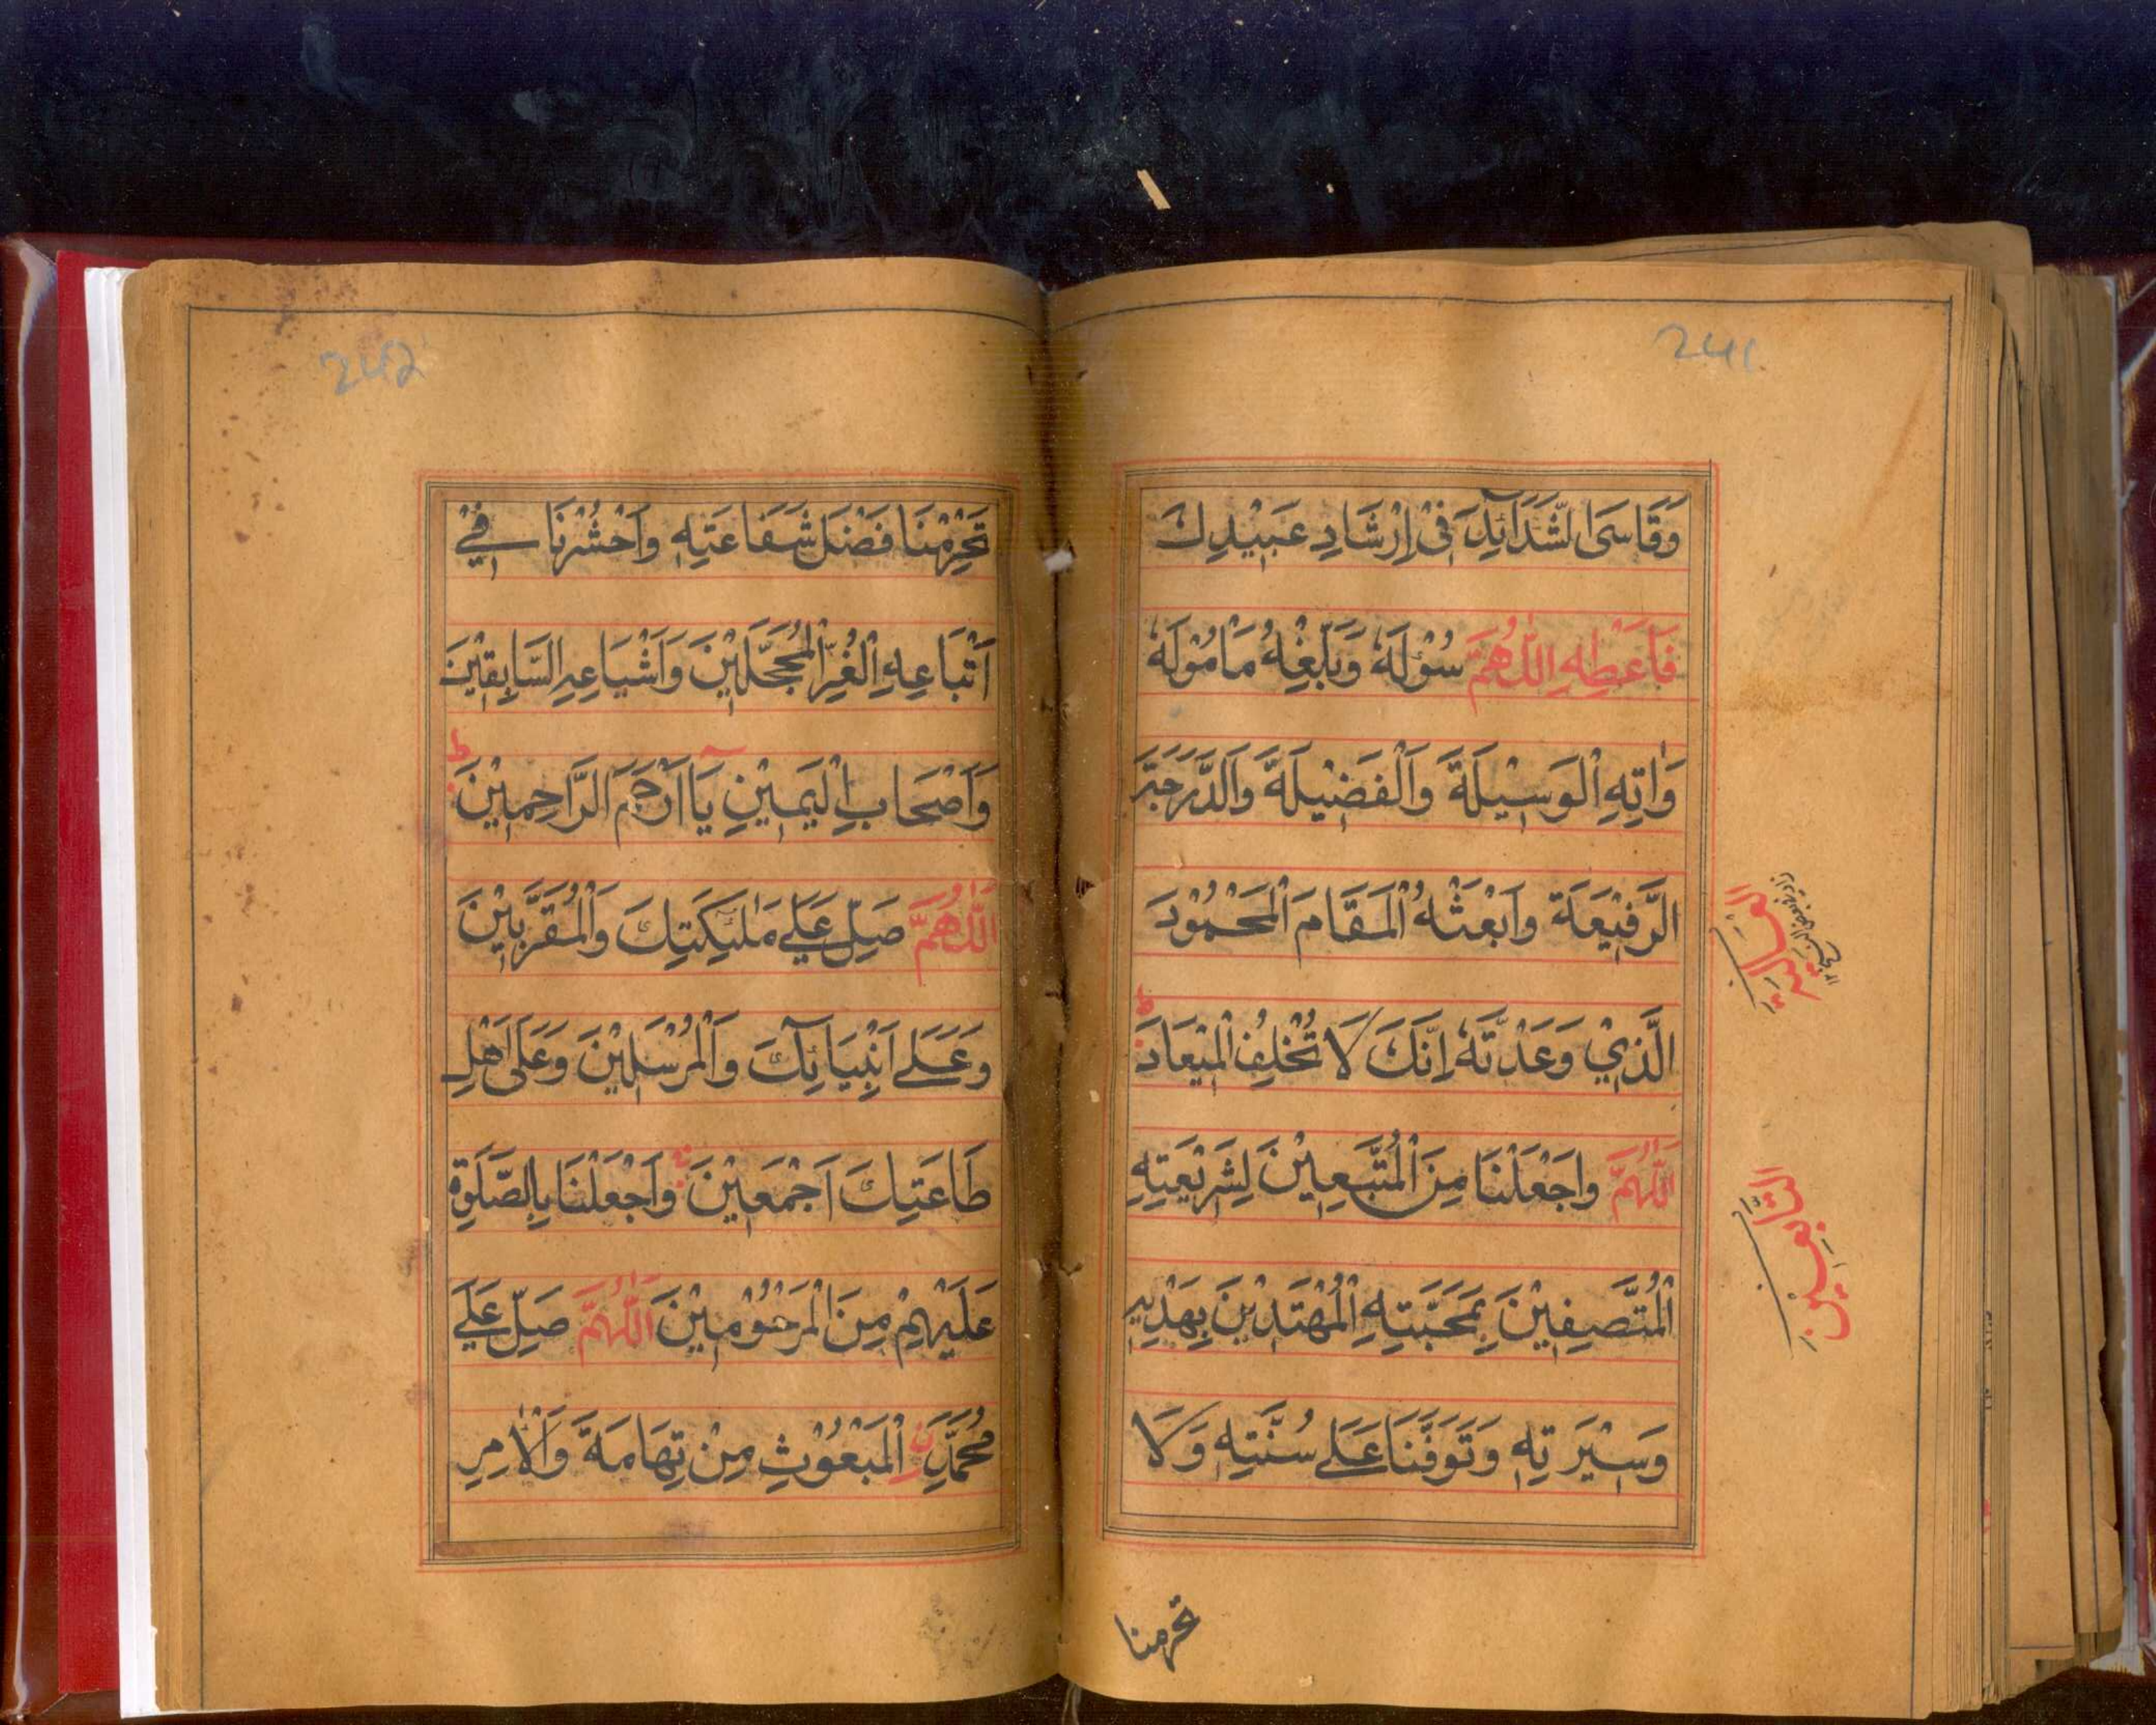 241
وَقَاسَى الشَّدَآئِدَ فِيْ اِرْشَادِ عَبِيْدِكَ
فَاَعْطِهِ اللّٰهُمَّ سُؤْلَهٗ وَبَلِّغْهُ مَاْمُوْلَهٗ
وَاٰتِهِ الْوَسِيْلَةَ وَالْفَضِيْلَةَ وَالدَّرَجَةَ
الرَّفِيْعَةَ وَابْعَثْهُ الْمَقَامَ الْمَحْمُوْدَ
الَّذِيْ وَعَدْتَّهٗ اِنَّكَ لَا تُخْلِفُ الْمِيْعَادَ ط
اَللّٰهُمَّ وَاجْعَلْنَا مِنَ الْمُتَّبِعِيْنَ لِشَرِيْعَتِهِ
الْمُتَّصِفِيْنَ بِمَحَبَّتِهِ الْمُهْتَدِيْنَ بِهَدْيِهِ
وَسِيْرَتِهِ وَتَوَفَّنَا عَلٰى سُنَّتِهِ وَلَا
التَّابِعِيْنَ
تحرمنا
242
تَحْرِمْنَا فَضْلَ شَفَاعَتِهِ وَاحْشُرْنَا فِيْ
اَتْبَاعِهِ الْغُرِّ الْمُحَجَّلِيْنَ وَاَشْيَاعِهِ السَّابِقِيْنَ
وَاَصْحَابِ الْيَمِيْنِ يَآ اَرْحَمَ الرَّاحِمِيْنَ ط
اَللّٰهُمَّ صَلِّ عَلٰى مَلٰٓئِكَتِكَ وَالْمُقَرَّبِيْنَ
وَعَلٰى اَنْبِيَآئِكَ وَالْمُرْسَلِيْنَ وَعَلٰى اَهْلِ
طَاعَتِكَ اَجْمَعِيْنَ وَاجْعَلْنَا بِالصَّلٰوةِ
عَلَيْهِمْ مِنَ الْمَرْحُوْمِيْنَ اَللّٰهُمَّ صَلِّ عَلٰى
مُحَمَّدِ نِ الْمَبْعُوْثِ مِنْ تِهَامَةَ وَالْاٰمِرِ